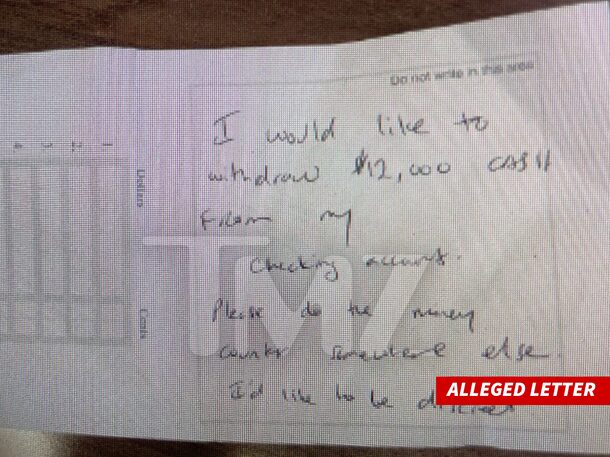 Do not write in this area
I would like to
withdraw $12,000 CASH
From my
checking account.
Please do the money
count somewhere else.
I'd like to be
ALLEGED LETTER
Dollars
Cents
1
2
3
4
TMZ